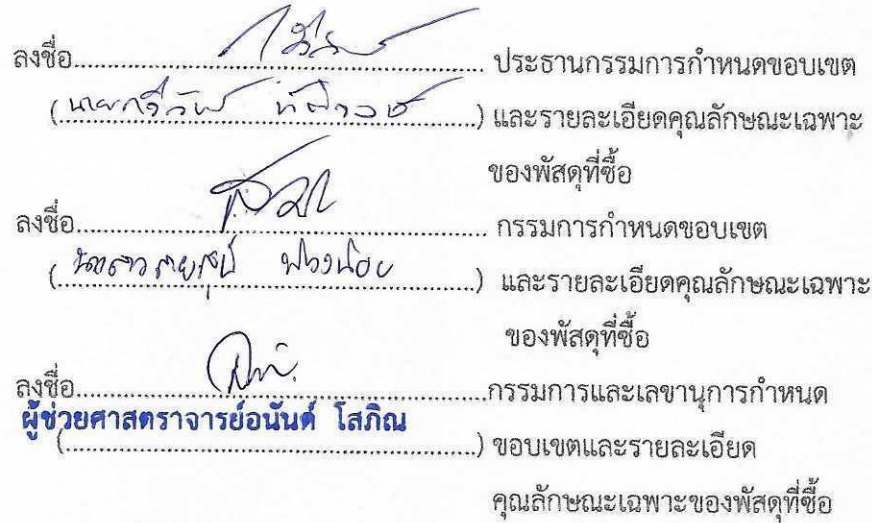 ลงชื่อ................................................ ประธานกรรมการกำหนดขอบเขต
(นาย................................................) และรายละเอียดคุณลักษณะเฉพาะ
ของพัสดุที่ซื้อ
ลงชื่อ................................................ กรรมการกำหนดขอบเขต
(นางสาว................................................) และรายละเอียดคุณลักษณะเฉพาะ
ของพัสดุที่ซื้อ
ลงชื่อ................................................กรรมการและเลขานุการกำหนด
ผู้ช่วยศาสตราจารย์อนันต์ โสภิณ
(................................................) ขอบเขตและรายละเอียด
คุณลักษณะเฉพาะของพัสดุที่ซื้อ